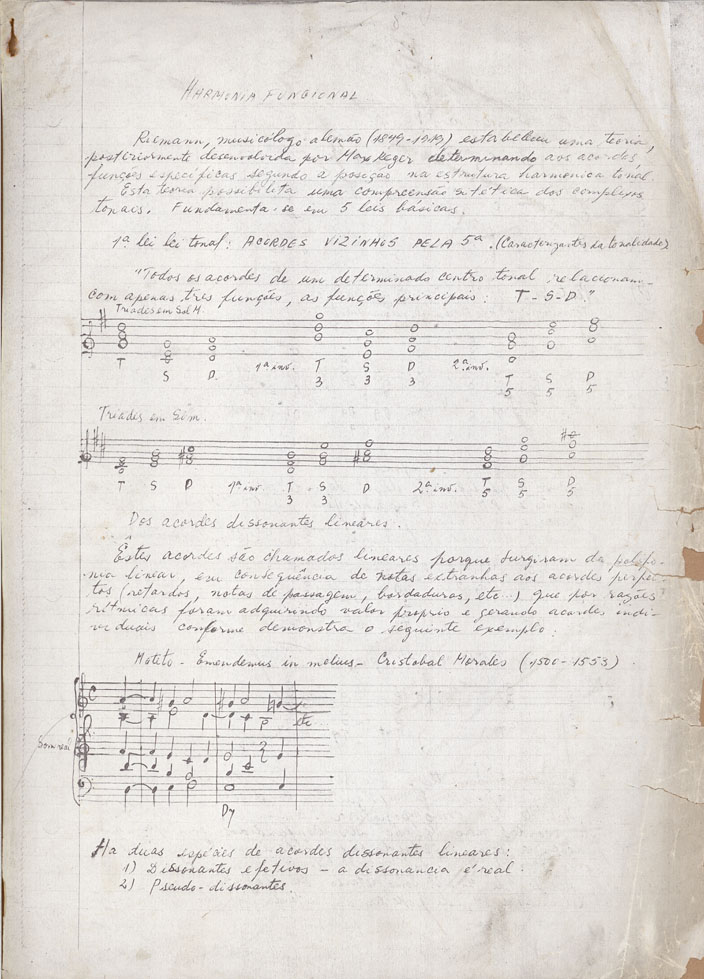 HARMONIA FUNCIONAL
Riemann, musicólogo alemão (1849-1919) estabeleceu uma teoria,
posteriormente desenvolvida por Max Reger determinando aos acordes,
funções específicas segundo a poseção na estrutura harmonica tonal.
Esta teoria possibilita uma compreensão sintética dos complexos
tonais. Fundamenta-se em 5 leis básicas.
1ª lei lei tonal: ACORDES VIZINHOS PELA 5ª. (Caracterizantes da tonalidade)
"Todos os acordes de um determinado centro tonal relacionam-
com apenas tres funções, as funções principais: T-S-D."
Triades em Sol M
T S D 1ª inv. T S D 2ª inv. T S D
3 3 3 5 5 5
Triades em Si m.
T S D 1ª inv. T S D 2ª inv. T S D
3 3 5 5 5
Dos acordes dissonantes lineares.
Êstes acordes são chamados lineares porque surgiram da polifo-
nia linear, em consequência de notas extranhas aos acordes perfei-
tos (retardos, notas de passagem, bordaduras, etc...) que por razões
ritmicas foram adquirindo valor proprio e gerando acordes indi-
viduais conforme demonstra o seguinte exemplo:
Moteto - Emendemus in melius - Cristobal Morales (1500-1553)
C
etc
Som real
D7
Ha duas espécies de acordes dissonantes lineares:
1) Dissonantes efetivos - a dissonancia é real.
2) Pseudo-dissonantes.